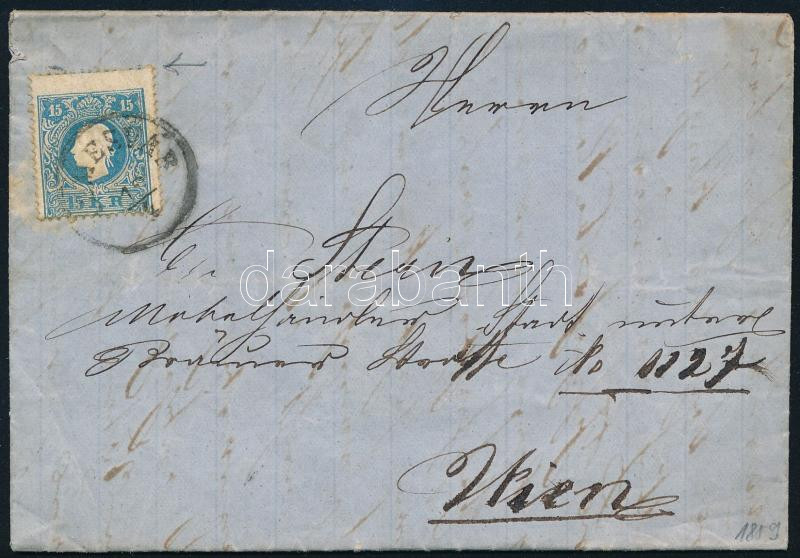 15 15
15 KR
Herrn
Stein
Möbelhändler Stadt untere
Bräuner Strasse No 1127
Wien
1859
darabanth